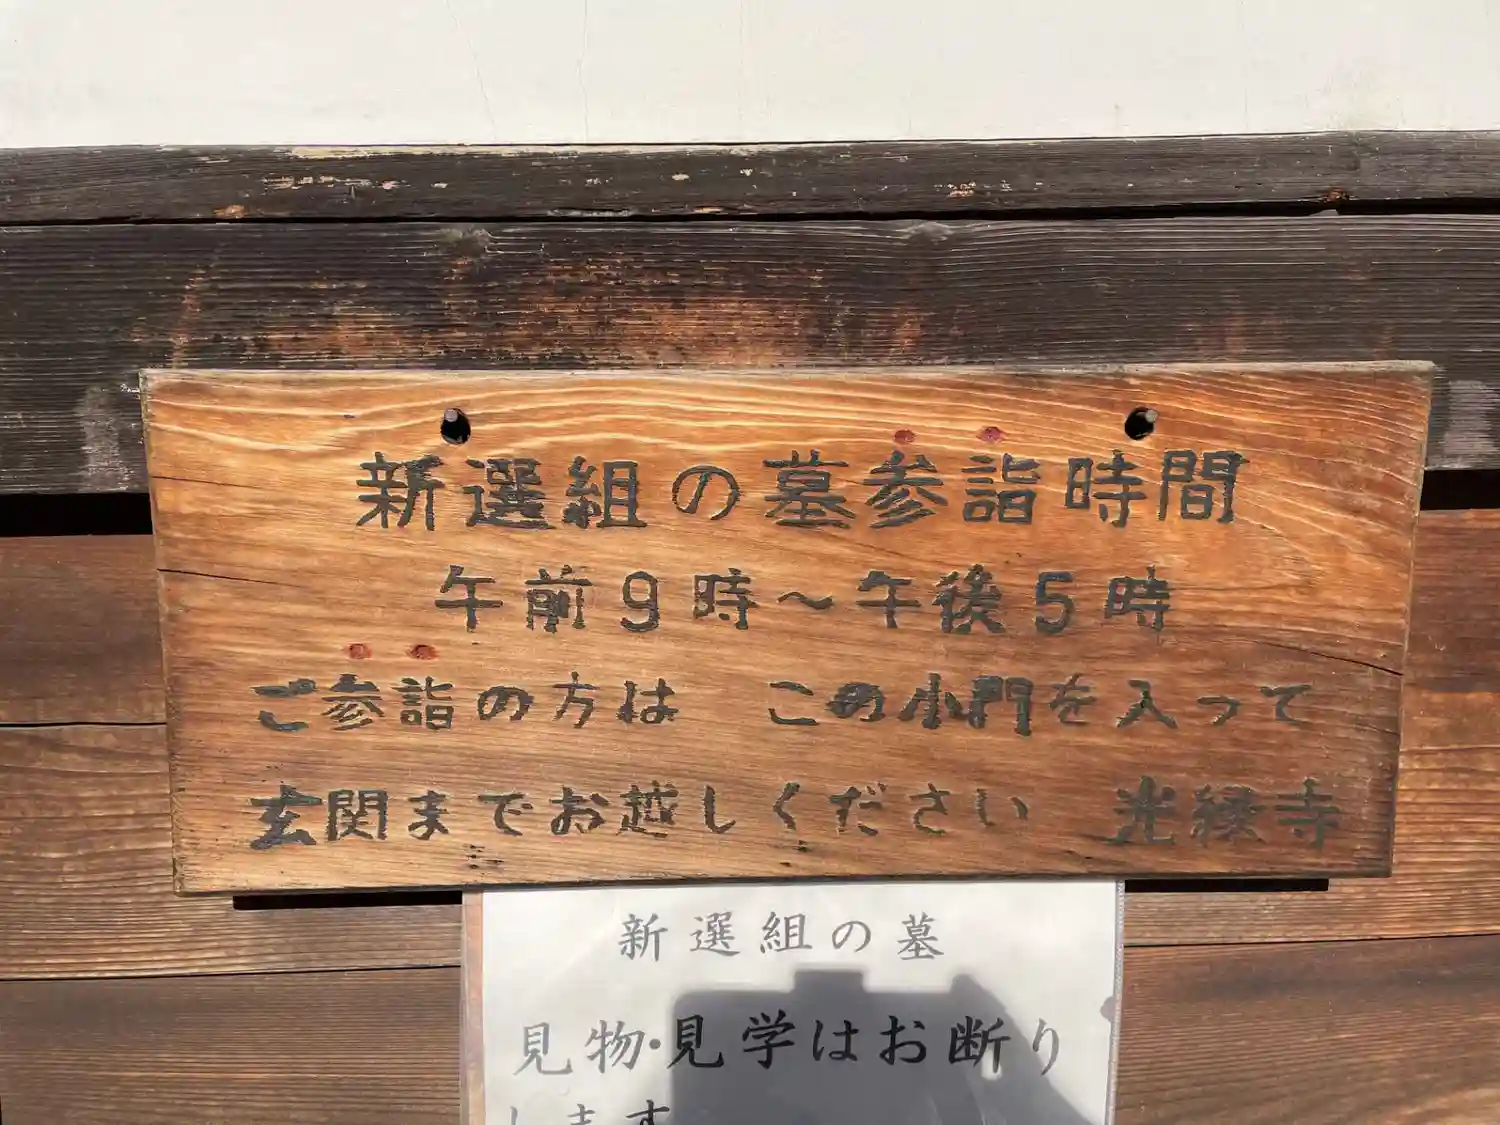 新選組の墓参詣時間
午前9時～午後5時
ご参詣の方は　この小門を入って
玄関までお越しください　光縁寺
新選組の墓
見物・見学はお断り
します